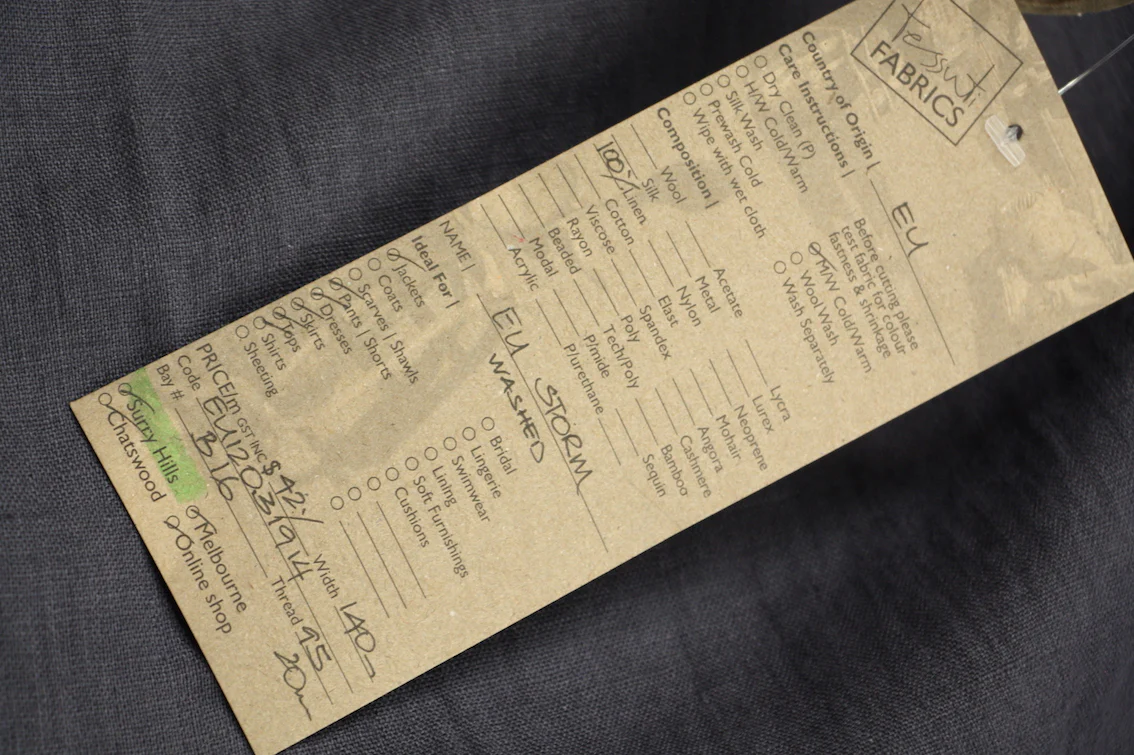 tessuti
FABRICS
Country of Origin | EU
Care Instructions |
Dry Clean (P)
H/W Cold/Warm
Silk Wash
Prewash Cold
Wipe with wet cloth
Before cutting please
test fabric for colour
fastness & shrinkage
M/W Cold/Warm
Wool Wash
Wash Separately
Composition |
Wool
Silk
100% Linen
Cotton
Viscose
Rayon
Beaded
Modal
Acrylic
Acetate
Metal
Nylon
Elast
Spandex
Poly
Tech/Poly
P/mide
P/urethane
Lycra
Lurex
Neoprene
Mohair
Angora
Cashmere
Bamboo
Sequin
NAME | EU STORM
WASHED
Ideal For |
Jackets
Coats
Scarves | Shawls
Pants | Shorts
Dresses
Skirts
Tops
Shirts
Sheeting
Bridal
Lingerie
Swimwear
Lining
Soft Furnishings
Cushions
PRICE/m GST INC $42/ Width 140
Code EU1203/914 Thread 95
Bay # B16 20m
Surry Hills
Chatswood
Melbourne
Online shop